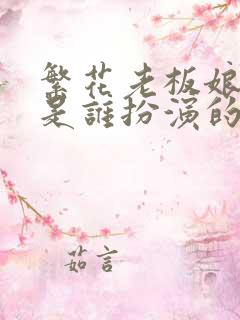 繁花老板娘
是誰扮演的
茹言